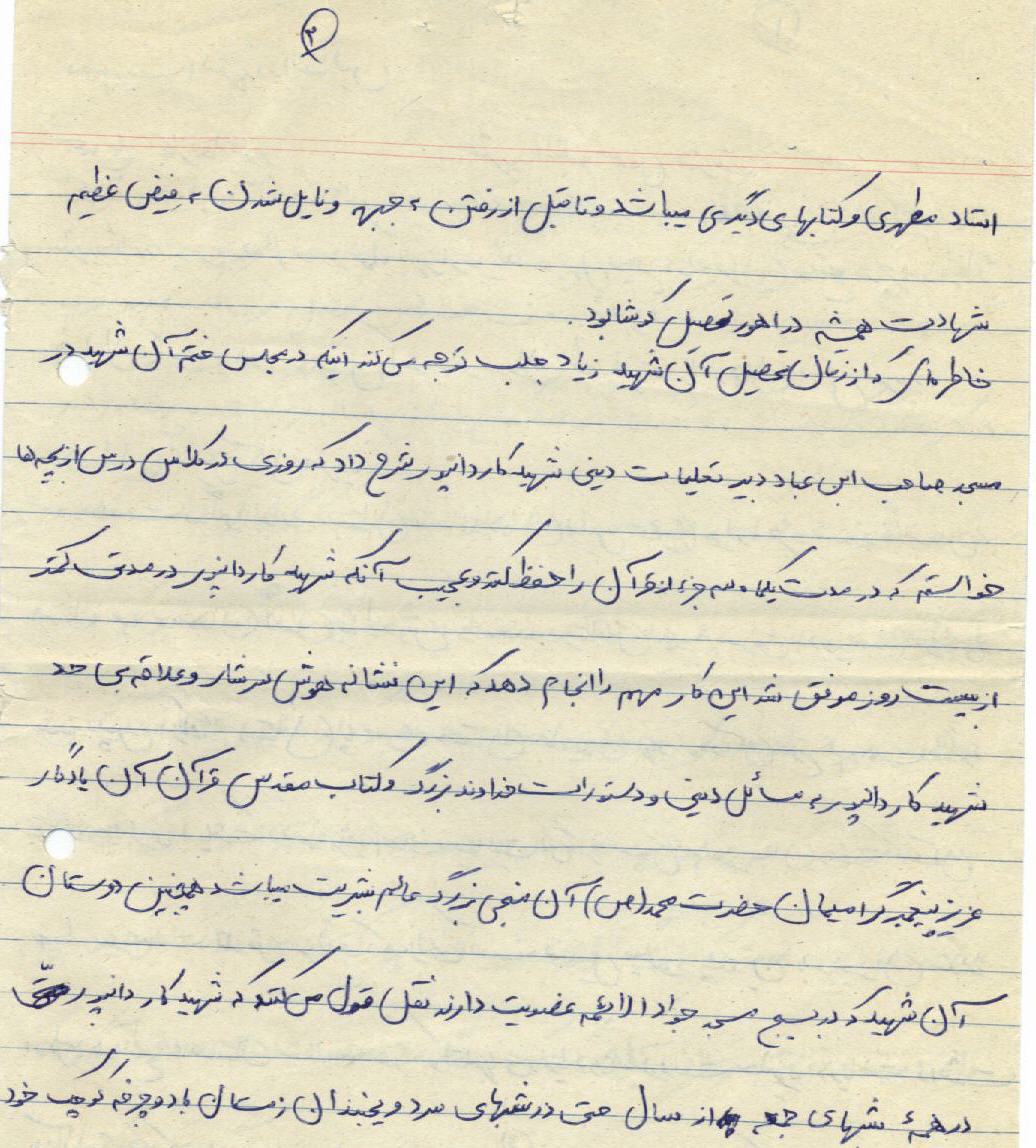 ۲
استاد مطهری و کتابهای دیگری میباشد و تا قبل از رفتن به جبهه و نایل شدن به فیض عظیم
شهادت همیشه در امور تحصیل کوشا بود.
خاطره‌ای که از زمان تحصیل آن شهید زیاد جلب توجه می کند اینکه در مجلس ختم آن شهید در
مسجد صاحب ابن عباد دبیر تعلیمات دینی شهید کاردانپور شرح داد که روزی در کلاس درس از بچه ها
خواستم که در مدت یکماه سه جزء از قرآن را حفظ کنند و عجیب آنکه شهید کاردانپور در مدتی کمتر
از بیست روز موفق شد این کار مهم را انجام دهد که این نشانه هوش سرشار و علاقه بی حد
شهید کاردانپور به مسائل دینی و دستورات خداوند بزرگ و کتاب مقدس قرآن آن یادگار
عزیز پیغمبر گرامیمان حضرت محمد (ص) آن منجی بزرگ عالم بشریت میباشد همچنین دوستان
آن شهید که در بسیج مسجد جواد الائمه عضویت دارند نقل قول می کنند که شهید کاردانپور
در همهٔ شبهای جمعه از سال حتی در شبهای سرد و یخبندان زمستان با دوچرخه کوچک خود